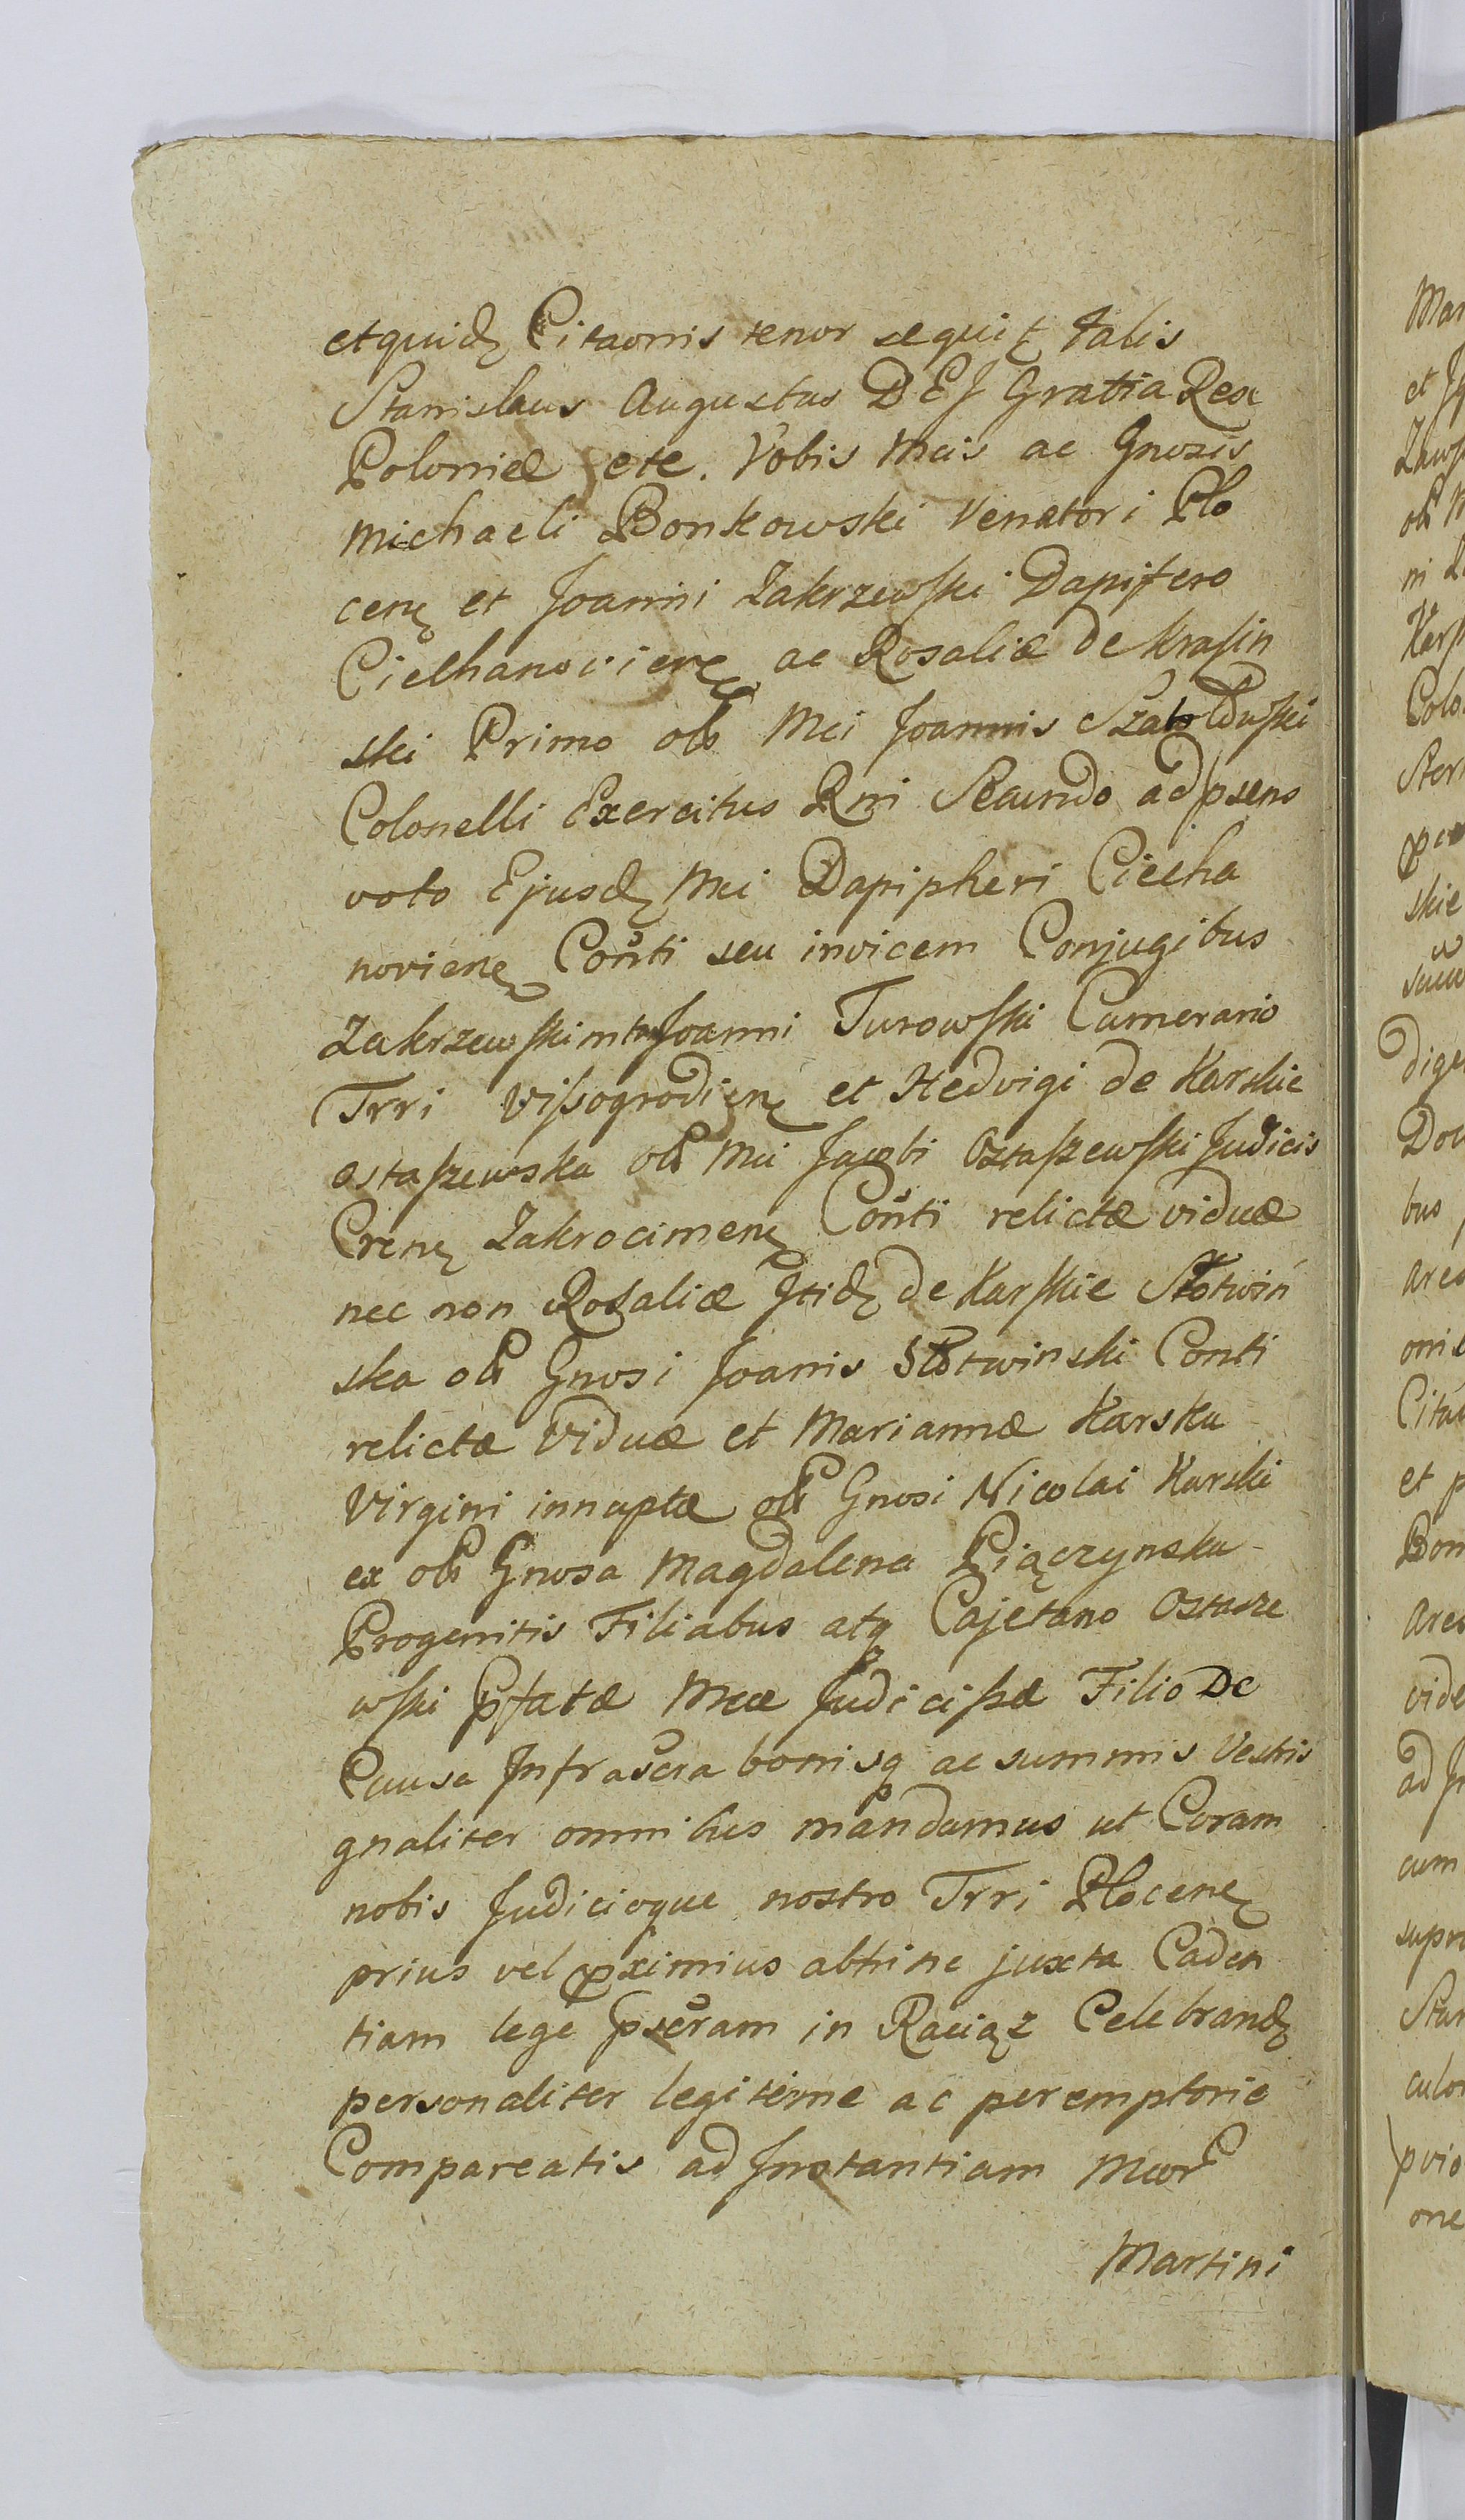 etquidę Citaonis tenor sequiť talis
Stanislaus Augustus DEJ Gratia Rex
Poloniæ etc. Vobis Mcis ac Gnosis
Michaeli Bonkowski Venatori Plo
cenę et Joanni Zakrzewski Dapifero
Ciechanovienę ac Rosaliæ de Krasin
ski Primo olb Mci Joannis
Colonelli Exercitus Rni Secundo ad psens
voto Ejusdę Mci Dapipheri Ciecha
novienę Conti seu invicem Conjugibus
Zakrzewski Joanni Turowski Camerario
Trri Vissogrodienę et Hedvigi de Karskie
ostaszewska olb Mci Jacobi Ostaszewski Judicis
Crenę Zakrocimenę Conti relictæ viduæ
nec non Rosaliæ Jtidę de Karskie Słotwiń
ska olb Gnosi Joanis Słotwinski Conti
relictæ Viduæ et Mariannæ Karska
Virgini innuptæ olb Gnosi Nicolai Karski
ex olb Gnosa Magdalena Piączynska
Progenitis Filiabus atq Cajetano Ostasze
wski pfatæ Mcæ Judicissæ Filio De
Causa Infrascra bonisq ac summis Vestris
gnaliter omnibus mandamus ut Coram
nobis Judicioque nostro Trri Plocenę
prius vel pximius abhinc juxta Caden
tiam lege pscram in Raciąż Celebrandę
personaliter legitime ac peremptorie
Compareatis ad Instantiam Mcor
Martini